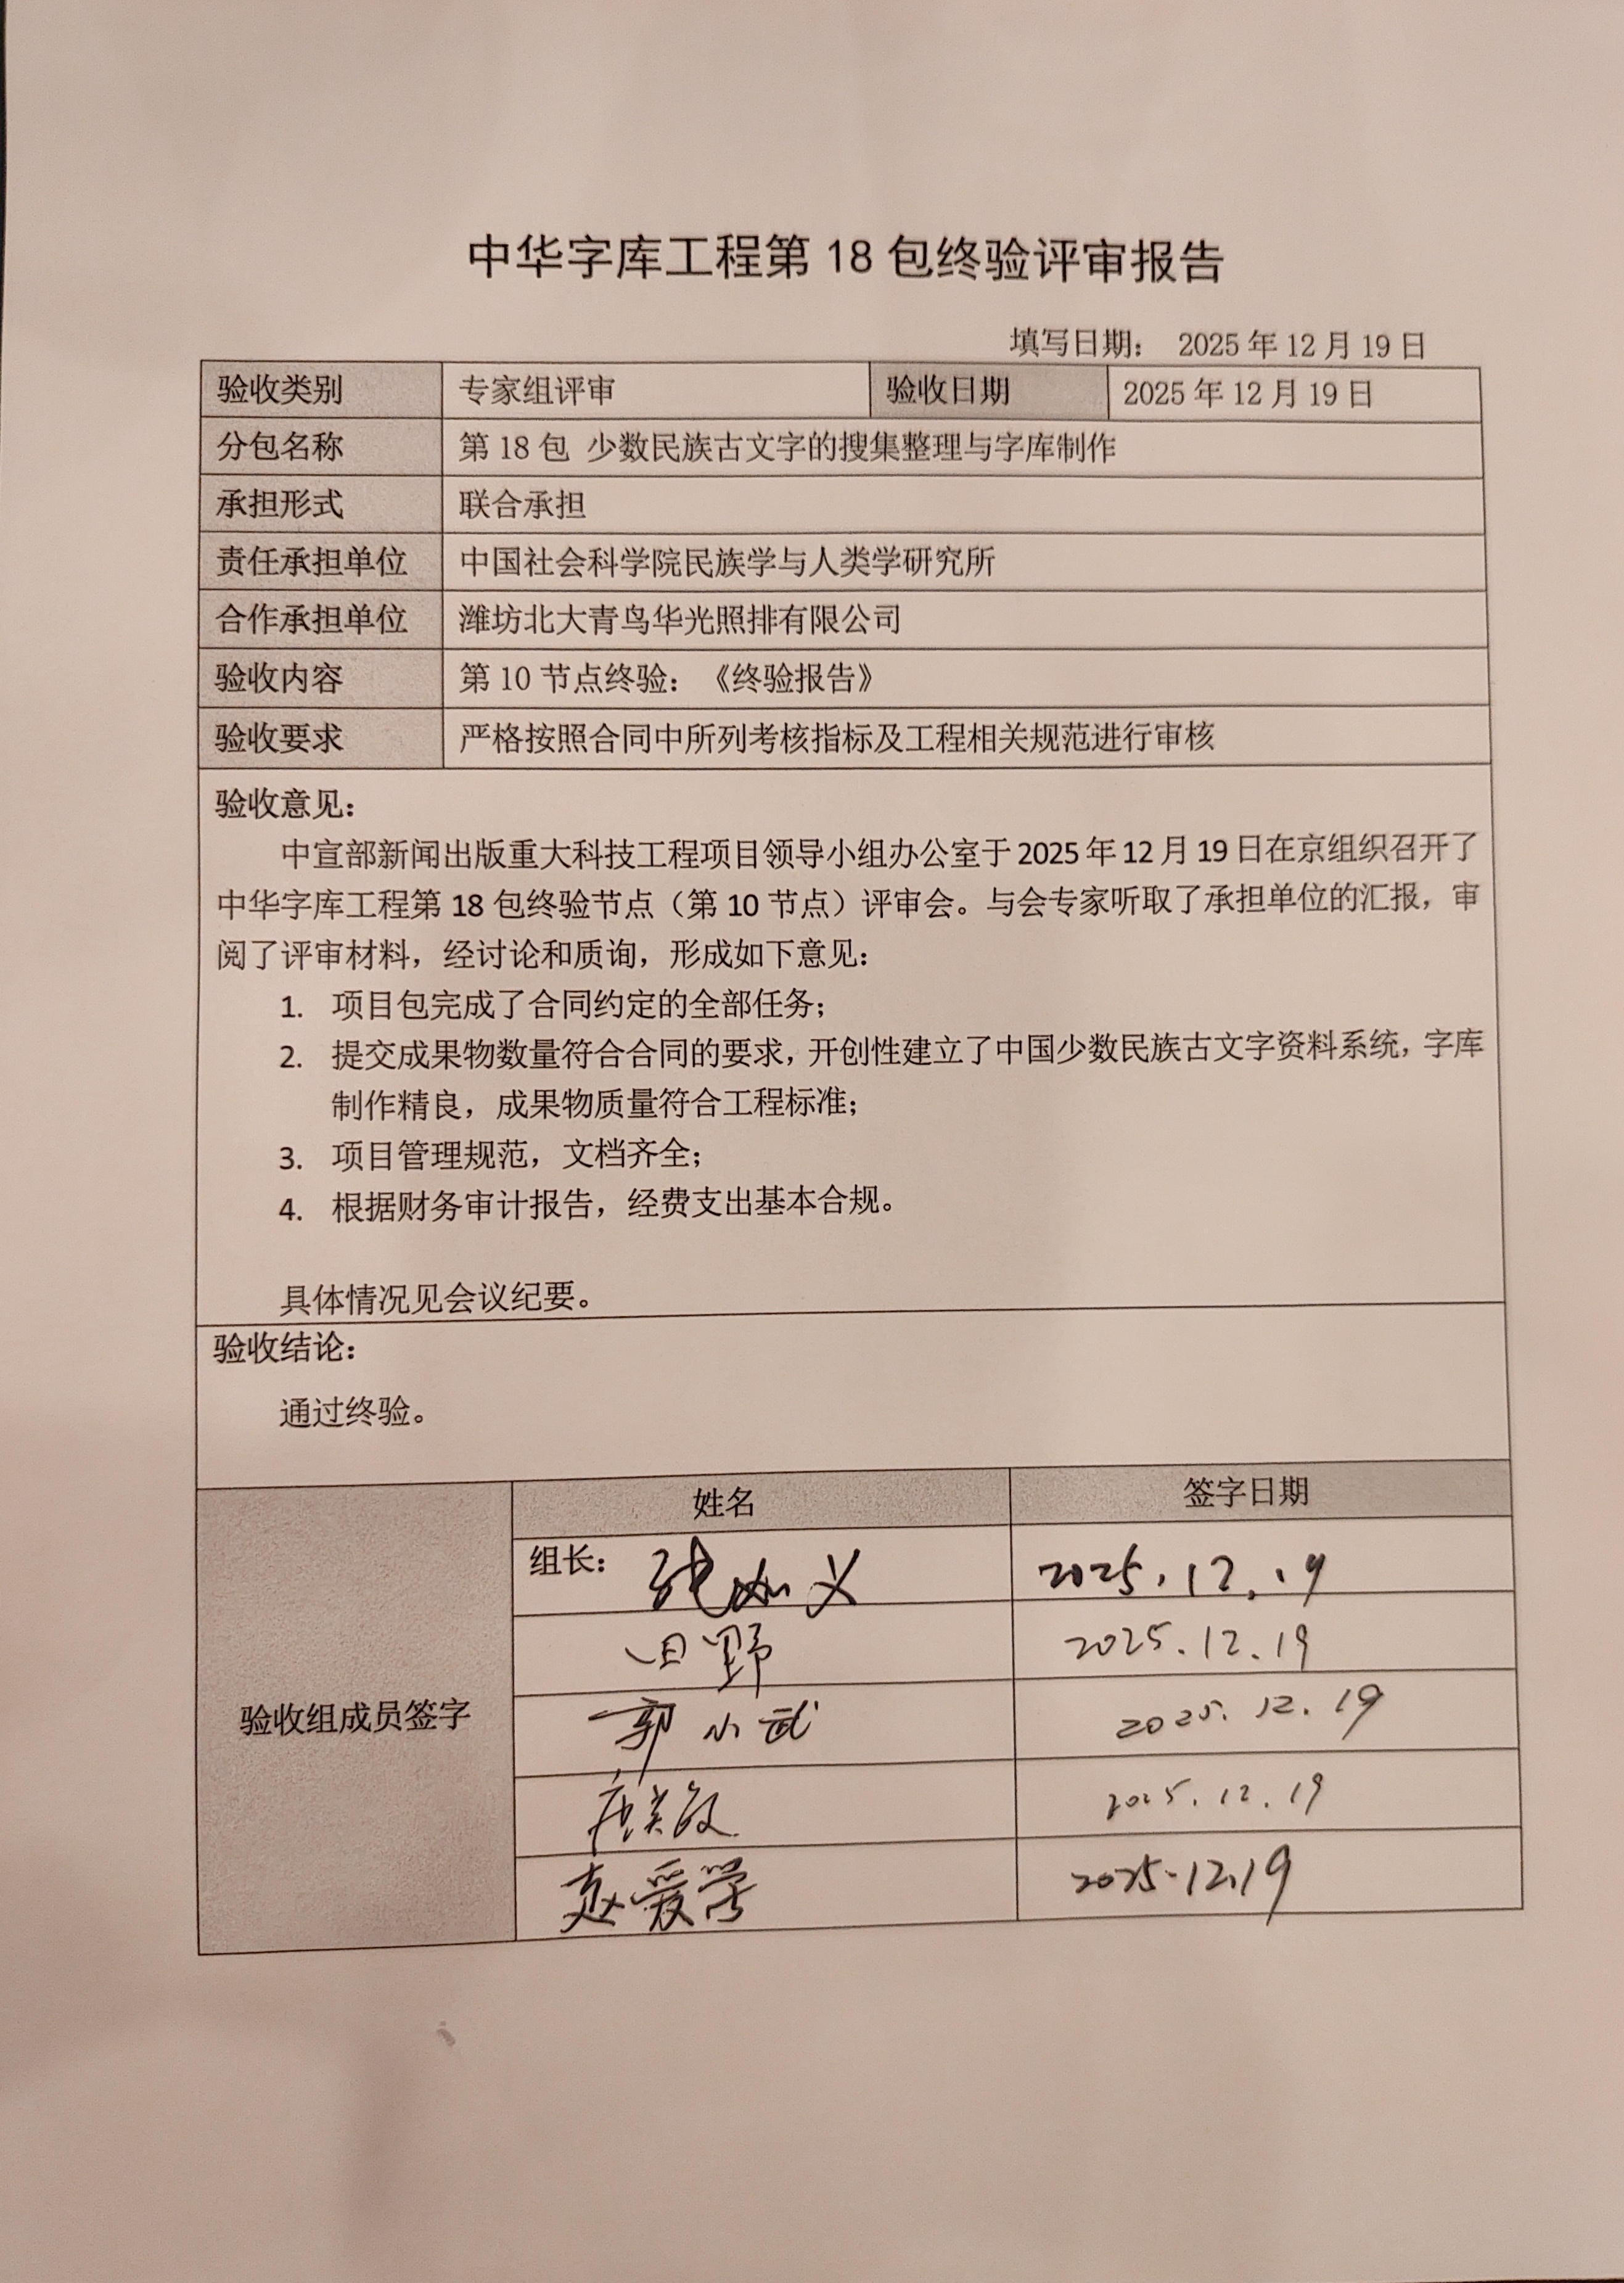 中华字库工程第 18 包终验评审报告
填写日期： 2025 年 12 月 19 日
验收类别 专家组评审 验收日期 2025 年 12 月 19 日
分包名称 第 18 包 少数民族古文字的搜集整理与字库制作
承担形式 联合承担
责任承担单位 中国社会科学院民族学与人类学研究所
合作承担单位 潍坊北大青鸟华光照排有限公司
验收内容 第 10 节点终验：《终验报告》
验收要求 严格按照合同中所列考核指标及工程相关规范进行审核
验收意见：
中宣部新闻出版重大科技工程项目领导小组办公室于 2025 年 12 月 19 日在京组织召开了
中华字库工程第 18 包终验节点（第 10 节点）评审会。与会专家听取了承担单位的汇报，审
阅了评审材料，经讨论和质询，形成如下意见：
1. 项目包完成了合同约定的全部任务；
2. 提交成果物数量符合合同的要求，开创性建立了中国少数民族古文字资料系统，字库
制作精良，成果物质量符合工程标准；
3. 项目管理规范，文档齐全；
4. 根据财务审计报告，经费支出基本合规。
具体情况见会议纪要。
验收结论：
通过终验。
验收组成员签字 姓名 签字日期
组长： 2025.12.19
田野 2025.12.19
郭小武 2025.12.19
2025.12.19
赵爱学 2025.12.19